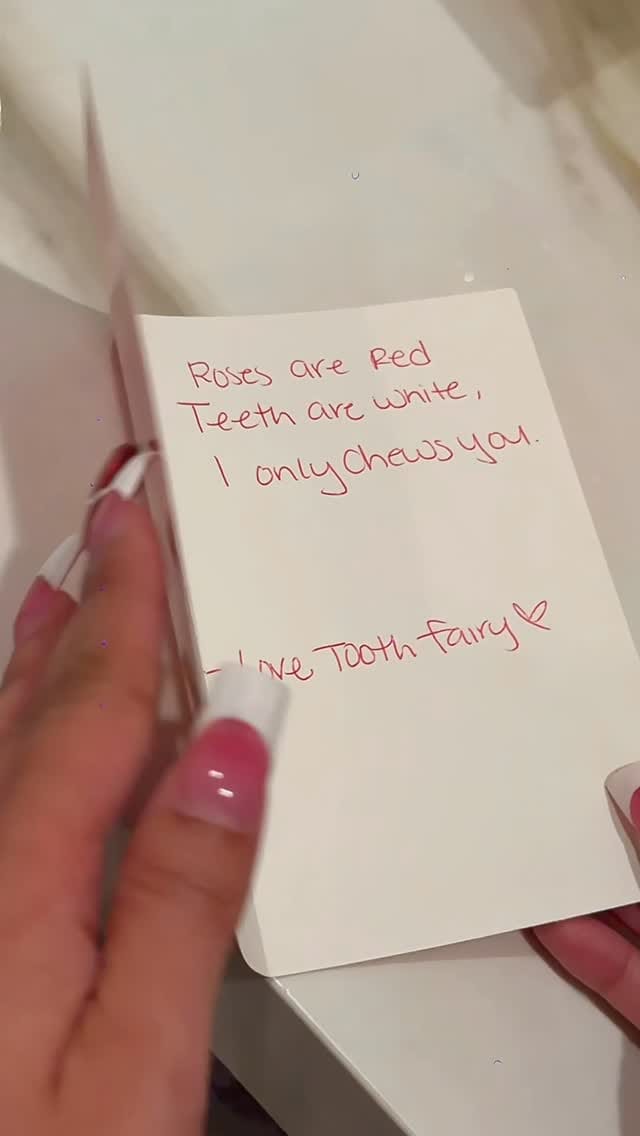 Roses are Red
Teeth are white,
I only chews you.
- Love Tooth fairy♡